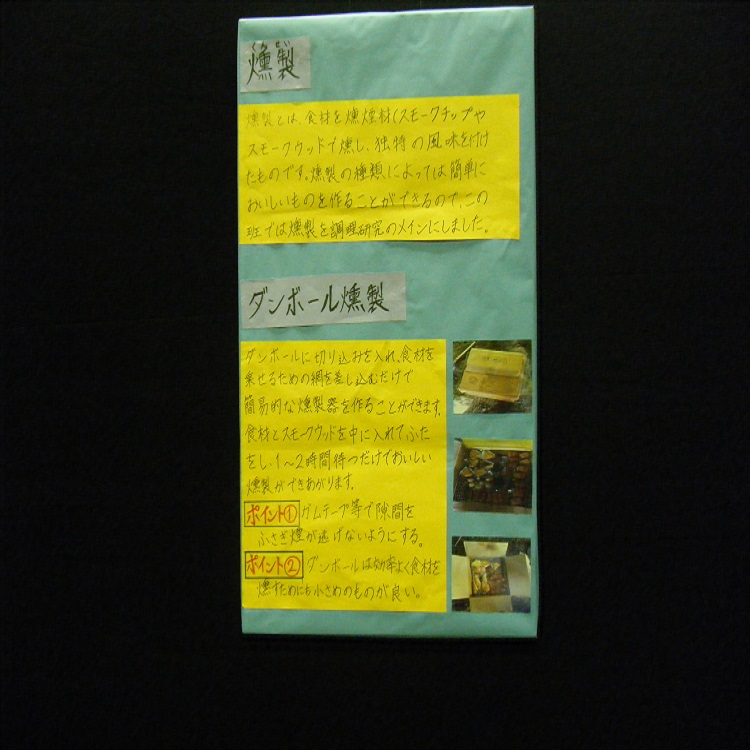 くんせい
燻製
燻製とは、食材を燻煙材(スモークチップや
スモークウッドで燻し、独特の風味を付け
たものです。燻製の種類によっては簡単に
おいしいものを作ることができるので、この
班では燻製を調理研究のメインにしました。
ダンボール燻製
ダンボールに切り込みを入れ、食材を
乗せるための網を差し込むだけで
簡易的な燻製器を作ることができます。
食材とスモークウッドを中に入れて、ふた
をし、1〜2時間待つだけでおいしい
燻製ができあがります。
ポイント① ガムテープ等で隙間を
ふさぎ煙が逃げないようにする。
ポイント② ダンボールは効率よく食材を
燻すためにも小さめのものが良い。